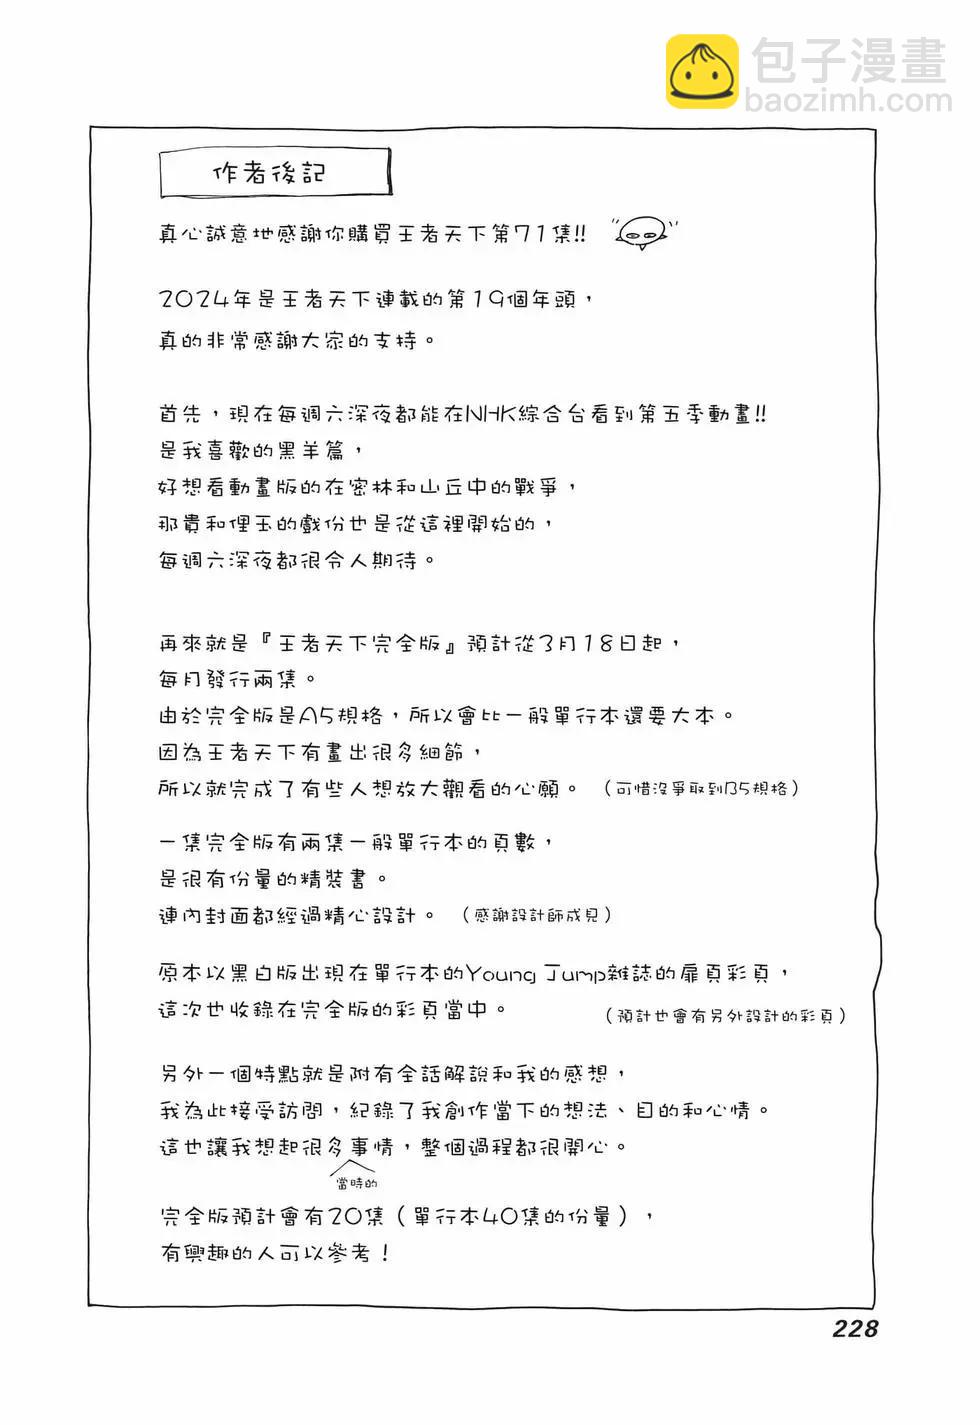 包子漫畫
baozimh.com
作者後記
真心誠意地感謝你購買王者天下第71集!!
2024年是王者天下連載的第19個年頭，
真的非常感謝大家的支持。
首先，現在每週六深夜都能在NHK綜合台看到第五季動畫!!
是我喜歡的黑羊篇，
好想看動畫版的在密林和山丘中的戰爭，
那貴和俚玉的戲份也是從這裡開始的，
每週六深夜都很令人期待。
再來就是『王者天下完全版』預計從3月18日起，
每月發行兩集。
由於完全版是A5規格，所以會比一般單行本還要大本。
因為王者天下有畫出很多細節，
所以就完成了有些人想放大觀看的心願。（可惜沒爭取到B5規格）
一集完全版有兩集一般單行本的頁數，
是很有份量的精裝書。
連內封面都經過精心設計。（感謝設計師成見）
原本以黑白版出現在單行本的Young Jump雜誌的扉頁彩頁，
這次也收錄在完全版的彩頁當中。（預計也會有另外設計的彩頁）
另外一個特點就是附有全話解說和我的感想，
我為此接受訪問，紀錄了我創作當下的想法、目的和心情。
這也讓我想起很多事情，整個過程都很開心。
當時的
完全版預計會有20集（單行本40集的份量），
有興趣的人可以參考！
228